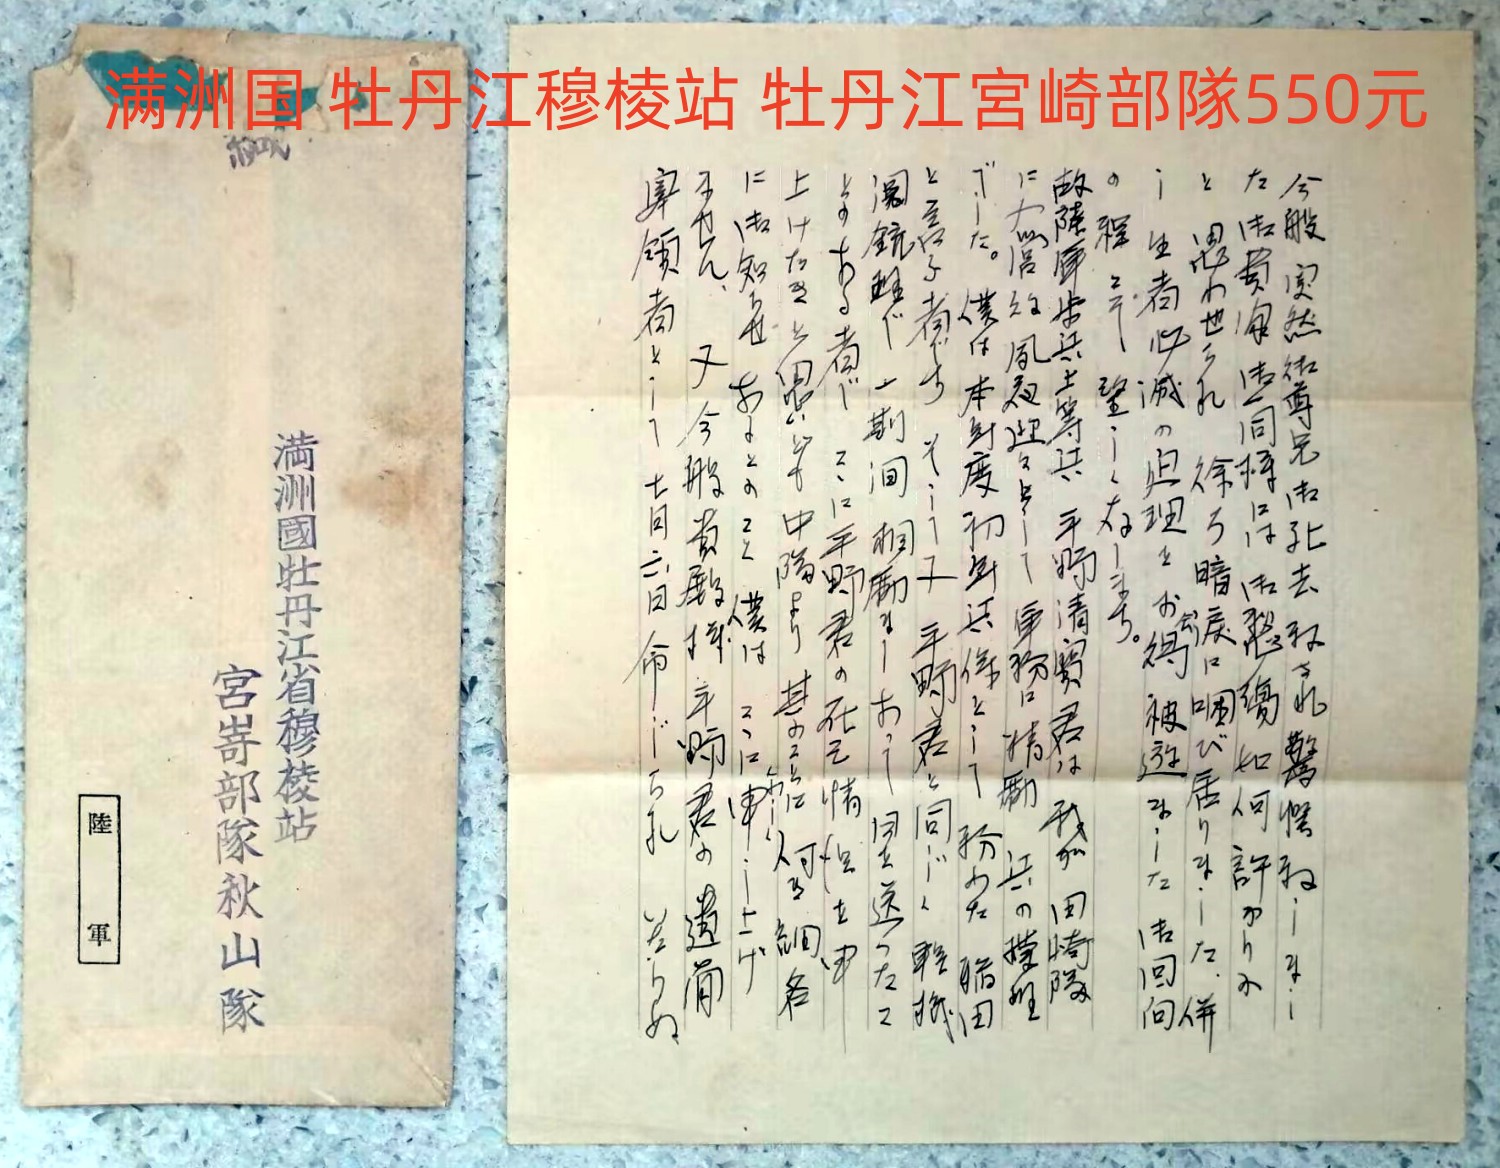 满洲国 牡丹江穆棱站 牡丹江宮崎部隊550元
緘
満洲國牡丹江省穆棱站
宮嵜部隊秋山隊
陸軍
今般突然御尊兄御死去致され驚愕致しまし
た御貴家御一同様には御愁傷如何許かりか
と思わせられ 徐ろ暗涙に咽び居りました、併
し生者必滅の理とお得被遊ました御回向
の程 望しくなします。
故陸軍歩兵上等兵 平野清實君は 我が田崎隊
に 夙夜 軍務に精勵 兵の模班
でした。僕は本年度初年兵係として 務めた 稲田
と言ふ者です そして又 平野君と同じく 軽機
関銃班で 一期间 相勵ましあって 日を送ったこ
とのある者で こゝに平野君の死亡情況を申
上げたきと思いども中隊より 其のことは 何き細名
に御知らせ あるとのこと 僕は こゝに申し上げ
ません、又今般貴殿様 平野君の遺骨
宰領者として 七月六日命じられ 至らぬ